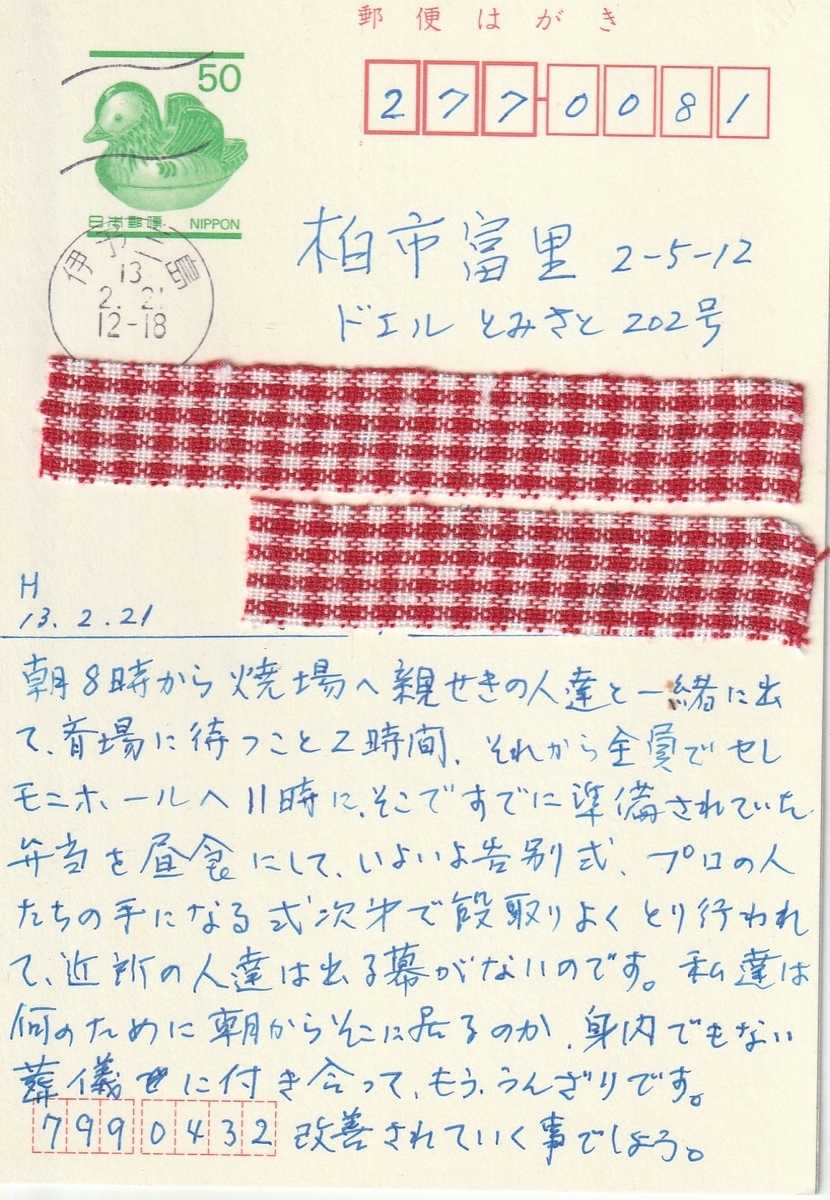 郵便はがき
50
日本郵便 NIPPON
277-0081
伊予三島
13
2. 21
12-18
柏市富里 2-5-12
ドエル とみさと 202号
H
13. 2. 21
朝8時から焼場へ親せきの人達と一緒に出
て、斉場に待つこと2時間、それから全員でセレ
モニホールへ11時に、そこですでに準備されていた
弁当を昼食にして、いよいよ告別式、プロの人
たちの手になる式次第で段取りよくとり行われ
て、近所の人達は出る幕がないのです。私達は
何のために朝からそこに居るのか、身内でもない
葬儀に付き合って、もう、うんざりです。
改善されていく事でしょう。
7990432